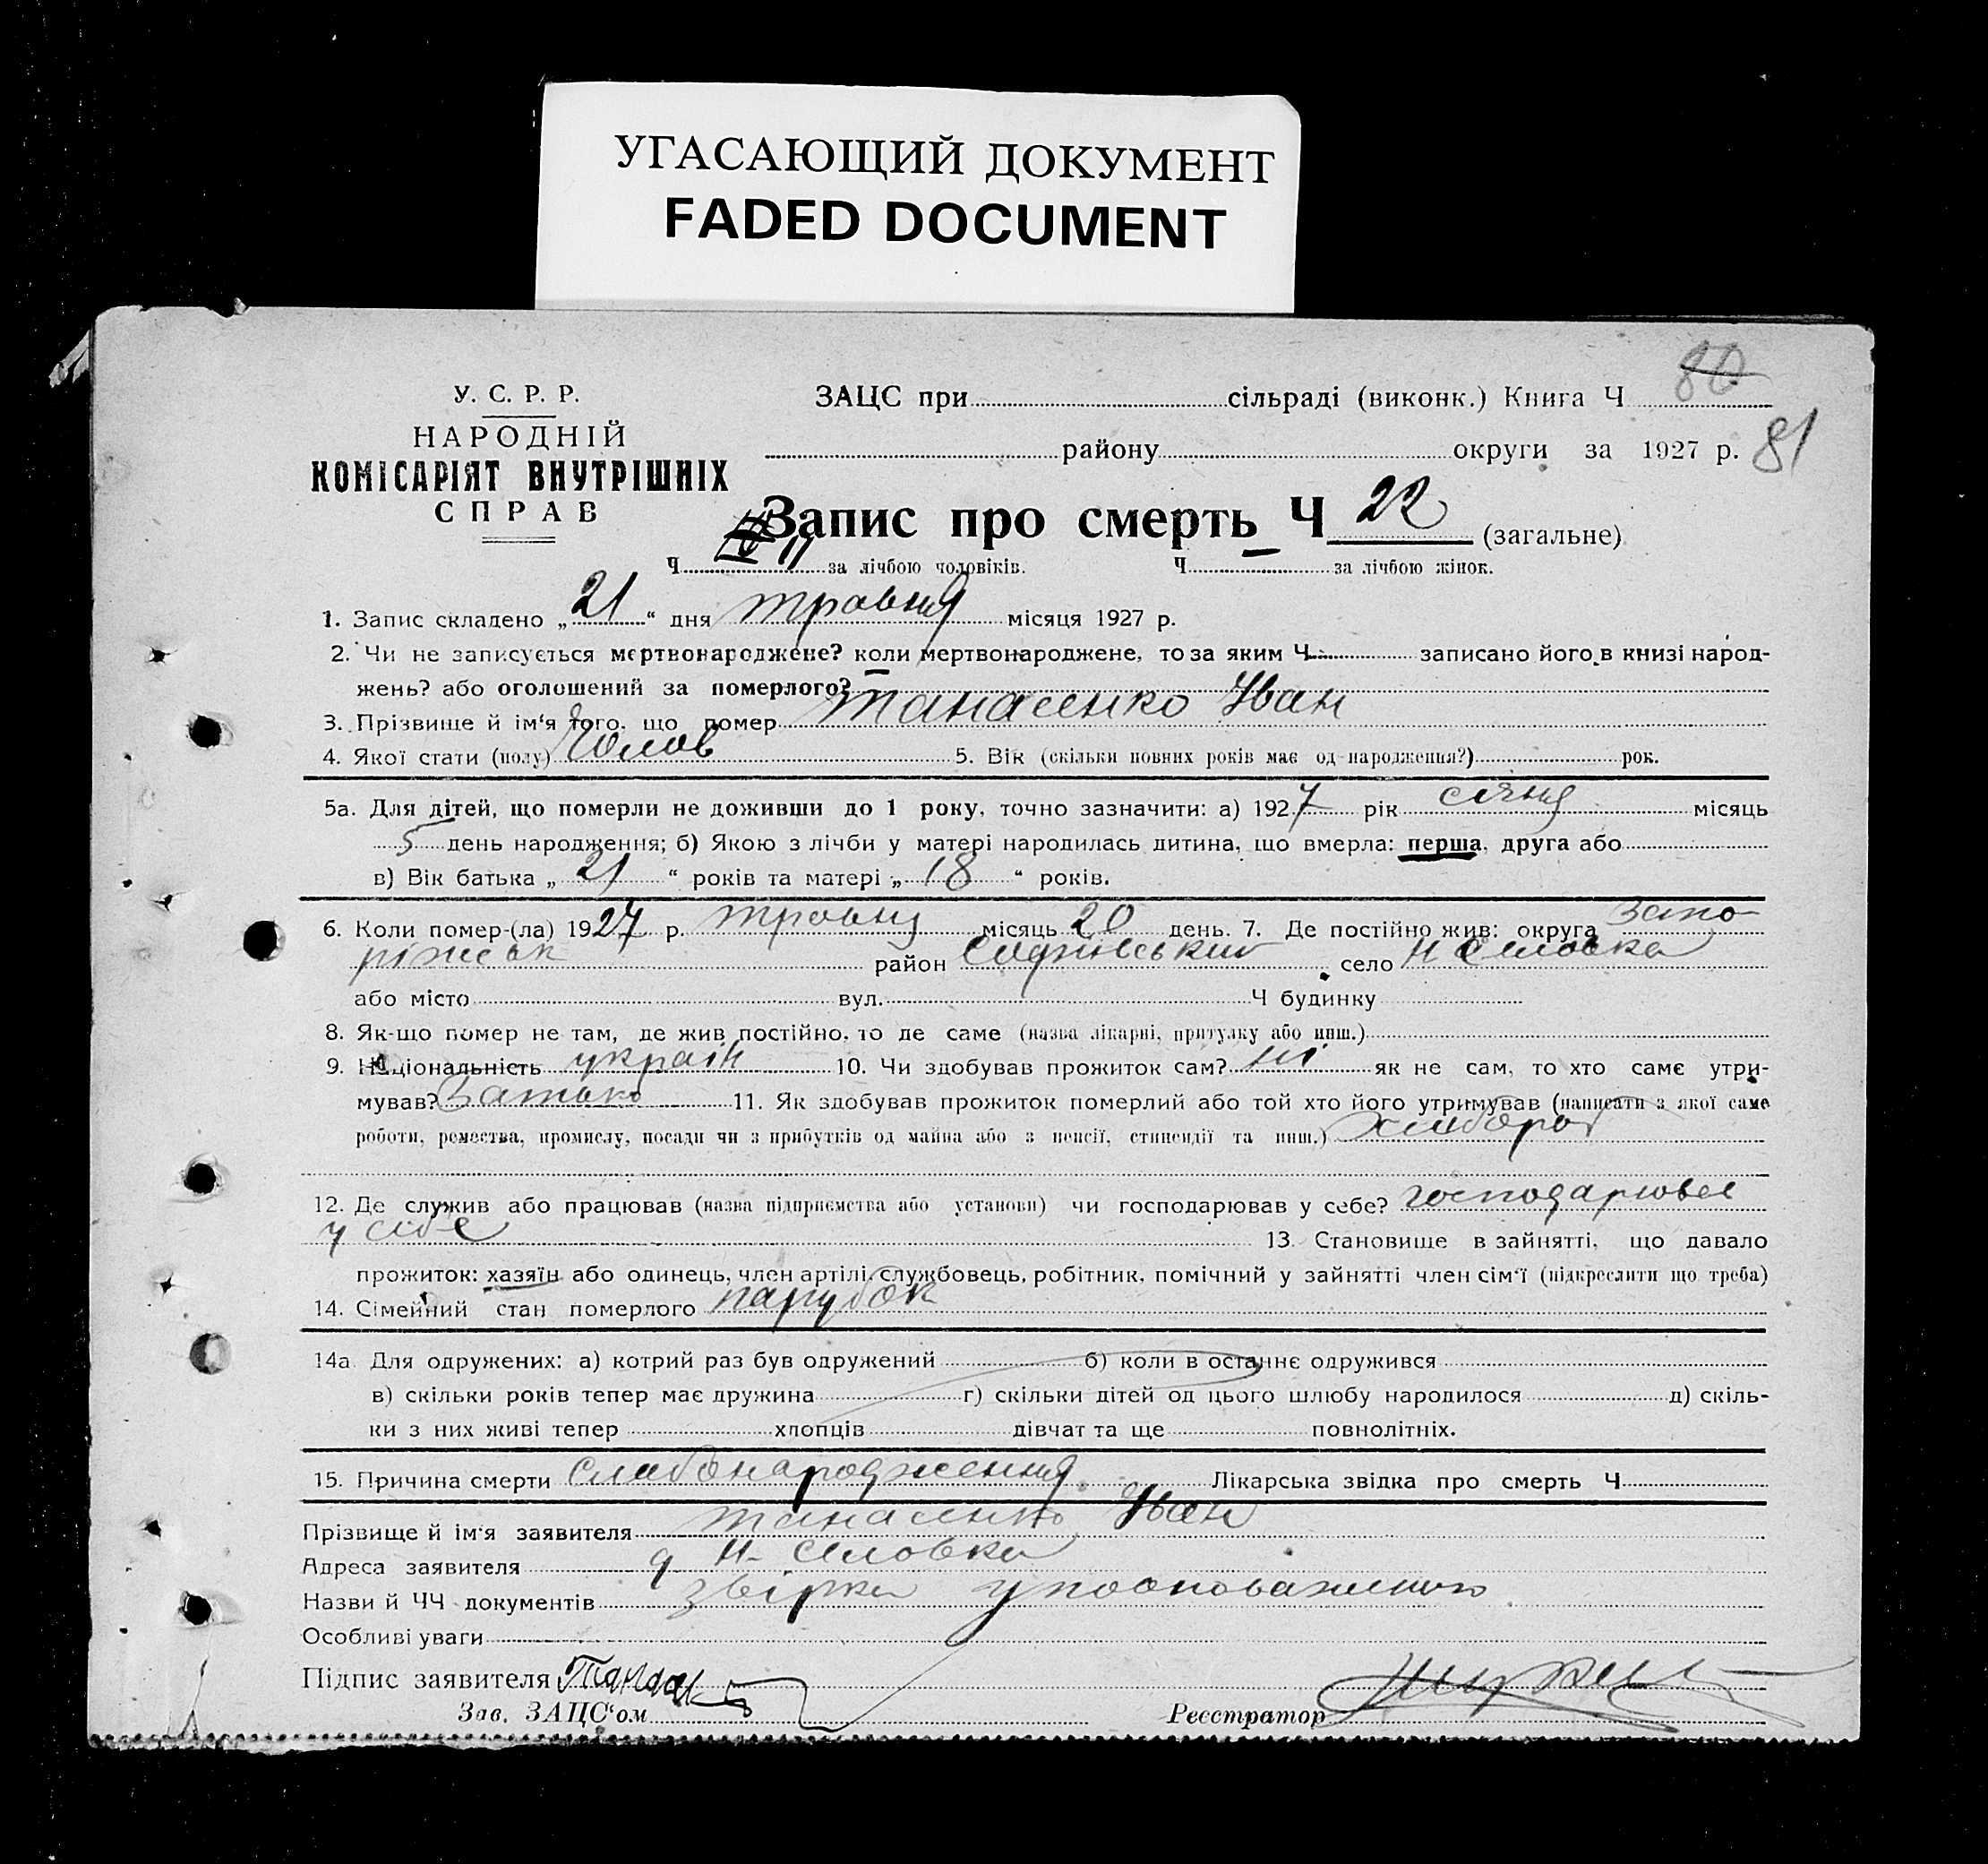 УГАСАЮЩИЙ ДОКУМЕНТ
FADED DOCUMENT
80
81
У. С. Р. Р.
НАРОДНІЙ
КОМІСАРІЯТ ВНУТРІШНІХ
СПРАВ
ЗАЦС при сільраді (виконк.) Книга Ч
району округи за 1927 р.
Запис про смерть Ч 22 (загальне)
Ч 11 за лічбою чоловіків. Ч за лічбою жінок.
1. Запис складено „21“ дня травня місяця 1927 р.
2. Чи не записується мертвонароджене? коли мертвонароджене, то за яким Ч записано його в книзі народ-
жень? або оголошений за померлого? —
3. Прізвище й ім‘я того, що помер Танасенко Іван
4. Якої стати (полу) Чолов 5. Вік (скільки повних років має од народження?) рок.
5а. Для дітей, що померли не доживши до 1 року, точно зазначити: а) 1927 рік січня місяць
5 день народження; б) Якою з лічби у матері народилась дитина, що вмерла: перша, друга або
в) Вік батька „21“ років та матері „18“ років.
6. Коли помер-(ла) 1927 р. травня місяць 20 день. 7. Де постійно жив: округа Запо-
ріжськ район село
або місто вул. Ч будинку
8. Як-що помер не там, де жив постійно, то де саме (назва лікарні, притулку або инш.)
9. Національність україн 10. Чи здобував прожиток сам? ні як не сам, то хто саме утри-
мував? Батько 11. Як здобував прожиток померлий або той хто його утримував (написати з якої саме
роботи, ремества, промислу, посади чи з прибутків од майна або з пенсії, стипендії та инш.) Хлібороб
12. Де служив або працював (назва підприємства або установи) чи господарював у себе? господарював
у себе 13. Становище в зайнятті, що давало
прожиток: хазяїн або одинець, член артілі, службовець, робітник, помічний у зайнятті член сім‘ї (підкреслити що треба)
14. Сімейний стан померлого парубок
14а. Для одружених: а) котрий раз був одружений б) коли в останнє одружився
в) скільки років тепер має дружина г) скільки дітей од цього шлюбу народилося д) скіль-
ки з них живі тепер хлопців дівчат та ще повнолітніх.
15. Причина смерти Слабонародження Лікарська звідка про смерть Ч
Прізвище й ім‘я заявителя Танасенко Іван
Адреса заявителя
Назви й ЧЧ документів звірка
Особливі уваги
Підпис заявителя
Зав. ЗАЦС‘ом Реєстратор